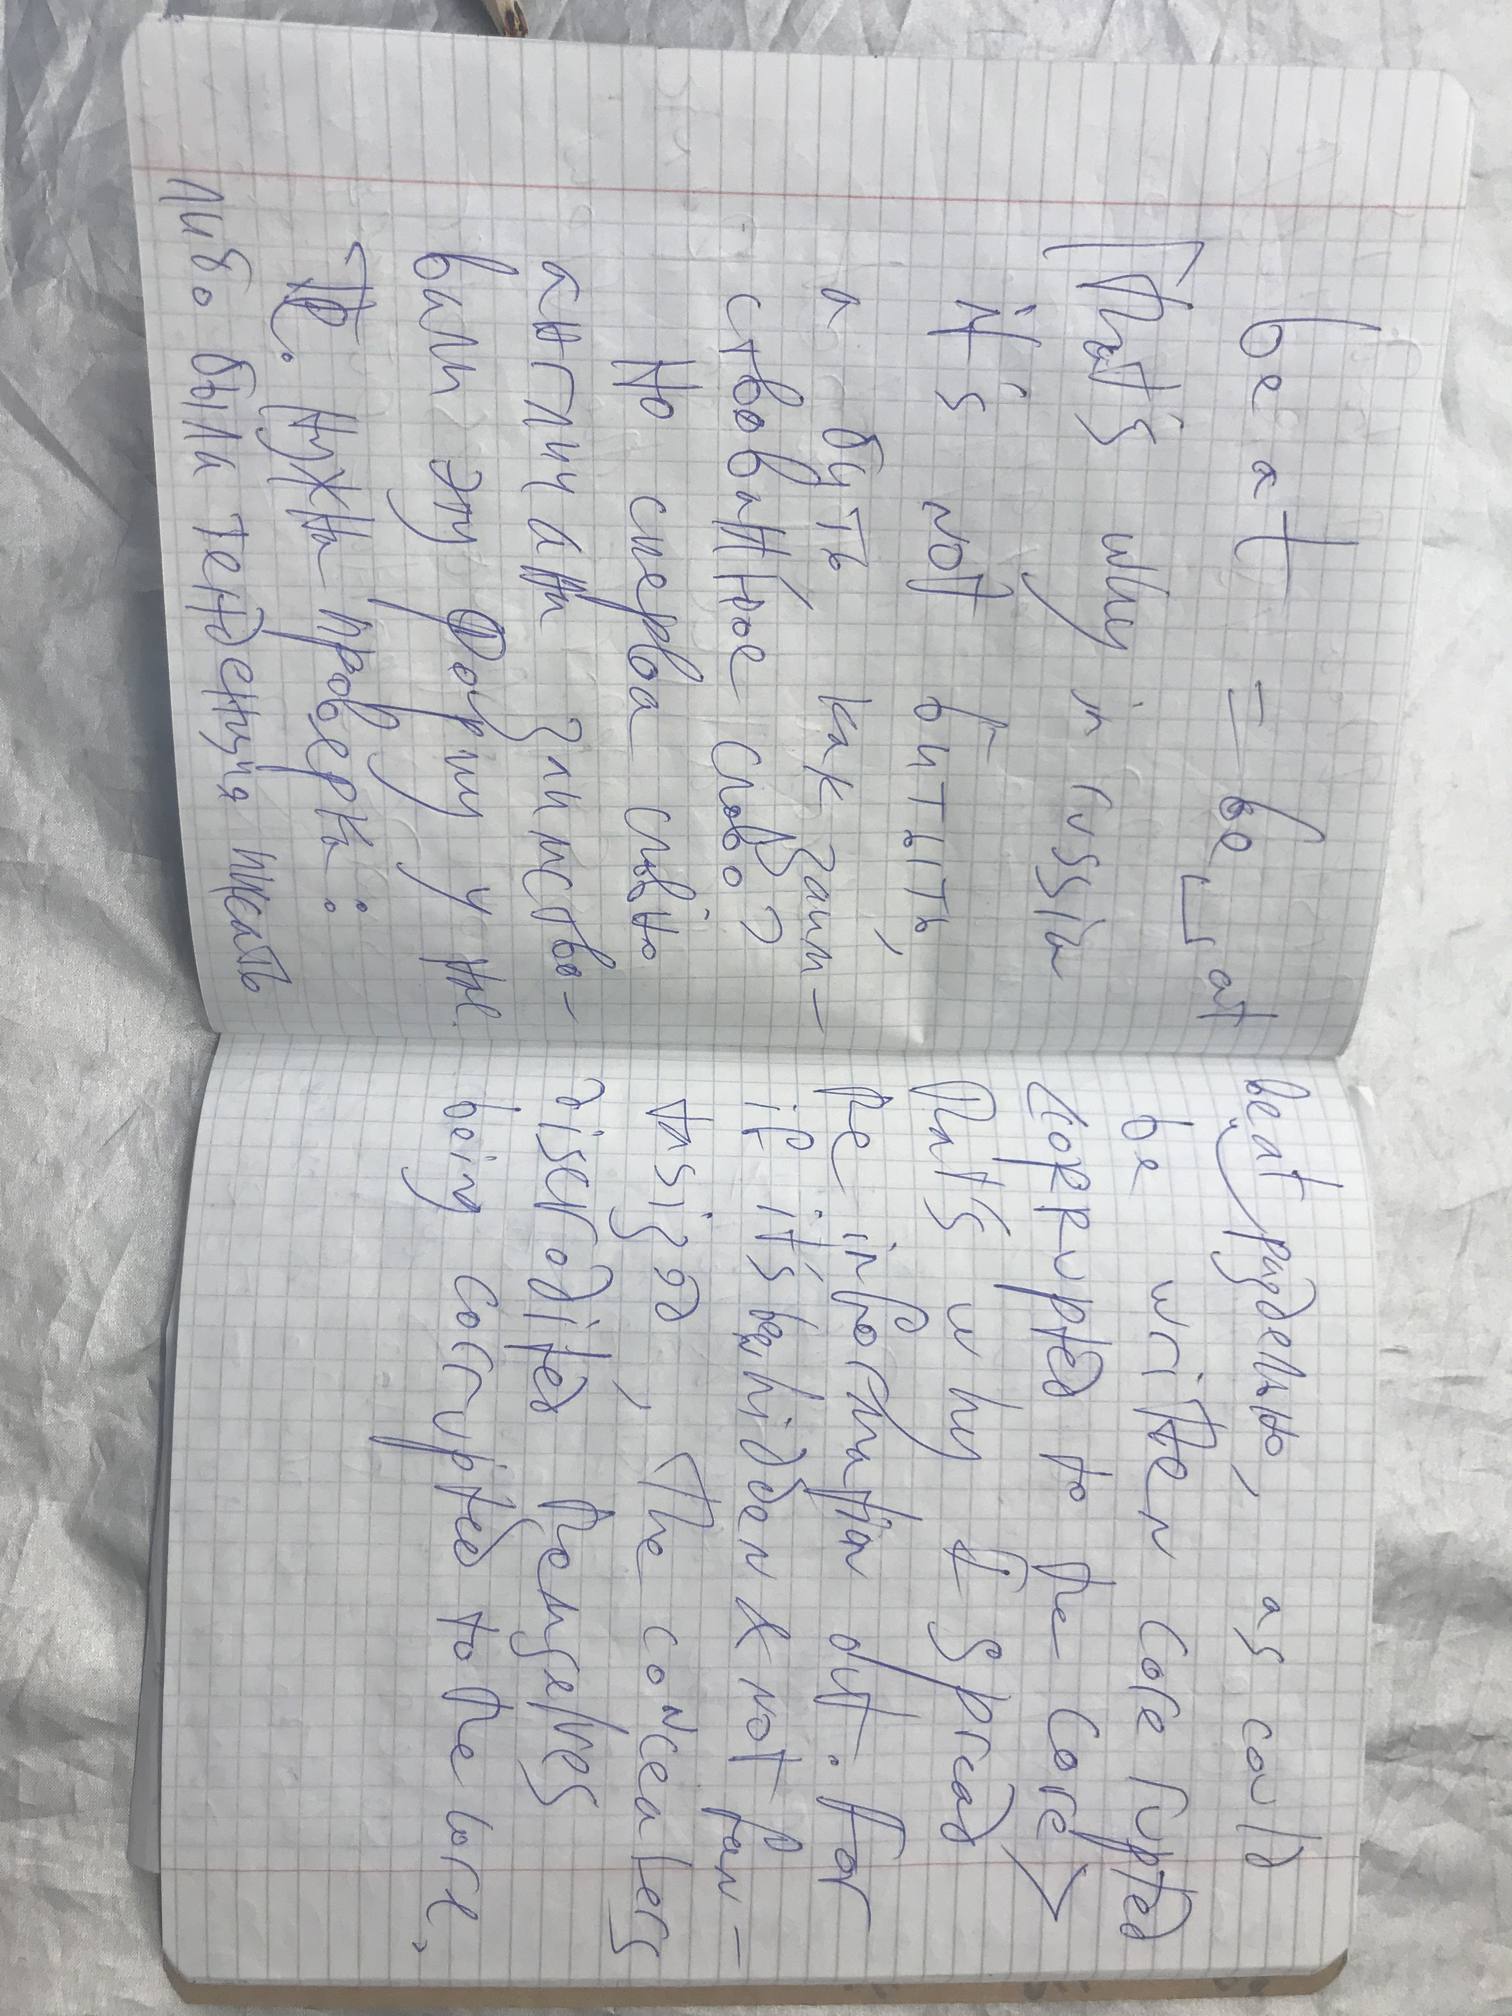 beat = be at
[That's why in russia
it's not битыть,
а быть как заим-
ствованное слово?
Но сперва слово
англичана заимство-
вали эту форму у
нужна проверка:
либо была тенденция писать
beat раздельно, as could
be written core rupted
corrupted to the core>
That's why I spread
the information out. for
if it's hidden & not fan-
tasized, the concealers
discrodited themselves
being corrupted to the core.